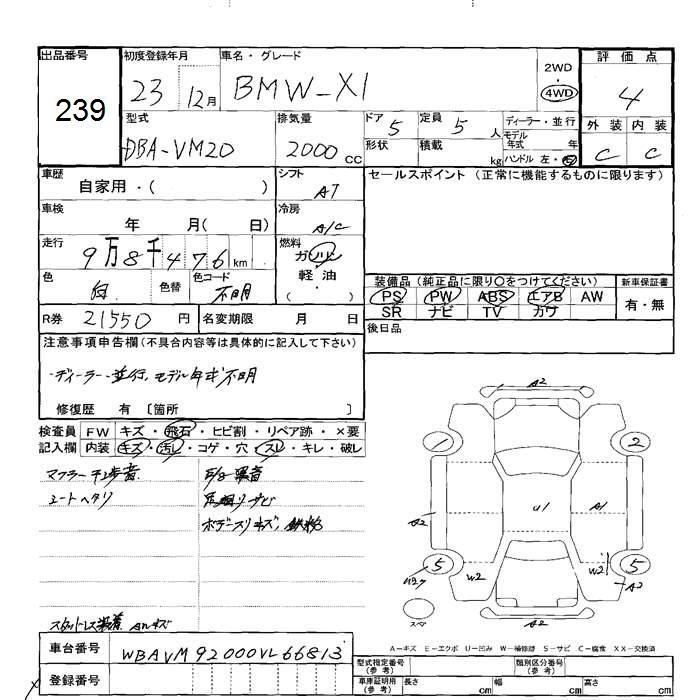 出品番号
239
初度登録年月
23 12月
車名・グレード
BMW-X1
2WD
4WD
評価点
4
外装 内装
C C
型式
DBA-VM20
排気量
2000 cc
ドア 5
定員 5 人
形状
積載 kg
ディーラー・並行
モデル年式 年
ハンドル 左・右
車歴
自家用・( )
シフト
AT
セールスポイント (正常に機能するものに限ります)
車検
年 月( 日)
冷房
A/C
走行
9万8千476km
燃料
ガソリン
軽油
( ・ )
色
白
色替
色コード
不明
装備品 (純正品に限り〇をつけてください)
PS PW ABS エアB AW
SR ナビ TV カワ
新車保証書
有・無
R券 21550 円
名変期限 月 日
後日品
注意事項申告欄(不具合内容等は具体的に記入して下さい)
・ディーラー・並行,モデル年式不明
修復歴 有 〔箇所 〕
検査員記入欄
FW キズ・飛石・ヒビ割・リペア跡・×要
内装 キズ・汚し・コゲ・穴・スレ・キレ・破レ
シートヘタリ
スタッドレス装着 AWキズ
A2
1 2
U1 A1
A2
5 5
W2 W2
A2
スペ
A2
A-キズ E-エクボ U-凹み W-補修跡 S-サビ C-腐食 XX-交換済
車台番号
WBAVM92000VL66813
登録番号
型式指定番号(参考)
類別区分番号(参考)
車庫証明用(参考) 長さ cm 幅 cm 高さ cm